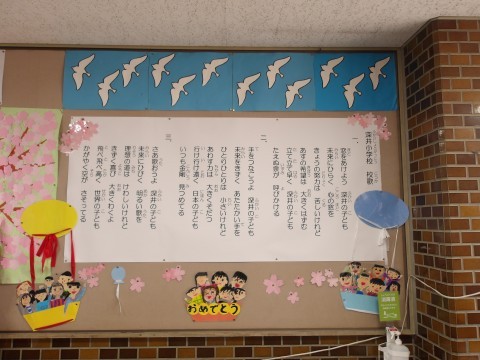 深井小学校 校歌
一、
窓をあけよう 深井の子ども
未来にひらく 心の窓を
きょうの努力は 苦しいけれど
あすの希望は 大きくはずむ
立て立て早く 深井の子ども
たえぬ窓が 呼びかける
二、
手をつなごうよ 深井の子ども
未来をきずく あたたかい手を
ひとりひとりは 小さいけれど
あわす力は 大きくそだつ
行け行け遠く 日本の子ども
いつも金剛 見つめてる
三、
さあ歌おうよ 深井の子ども
未来にひびく 明るい歌を
理想の道は けわしいけれど
きずく喜び 大きくわくよ
飛べ飛べ高く 世界の子ども
かがやく空が さそってる
おめでとう